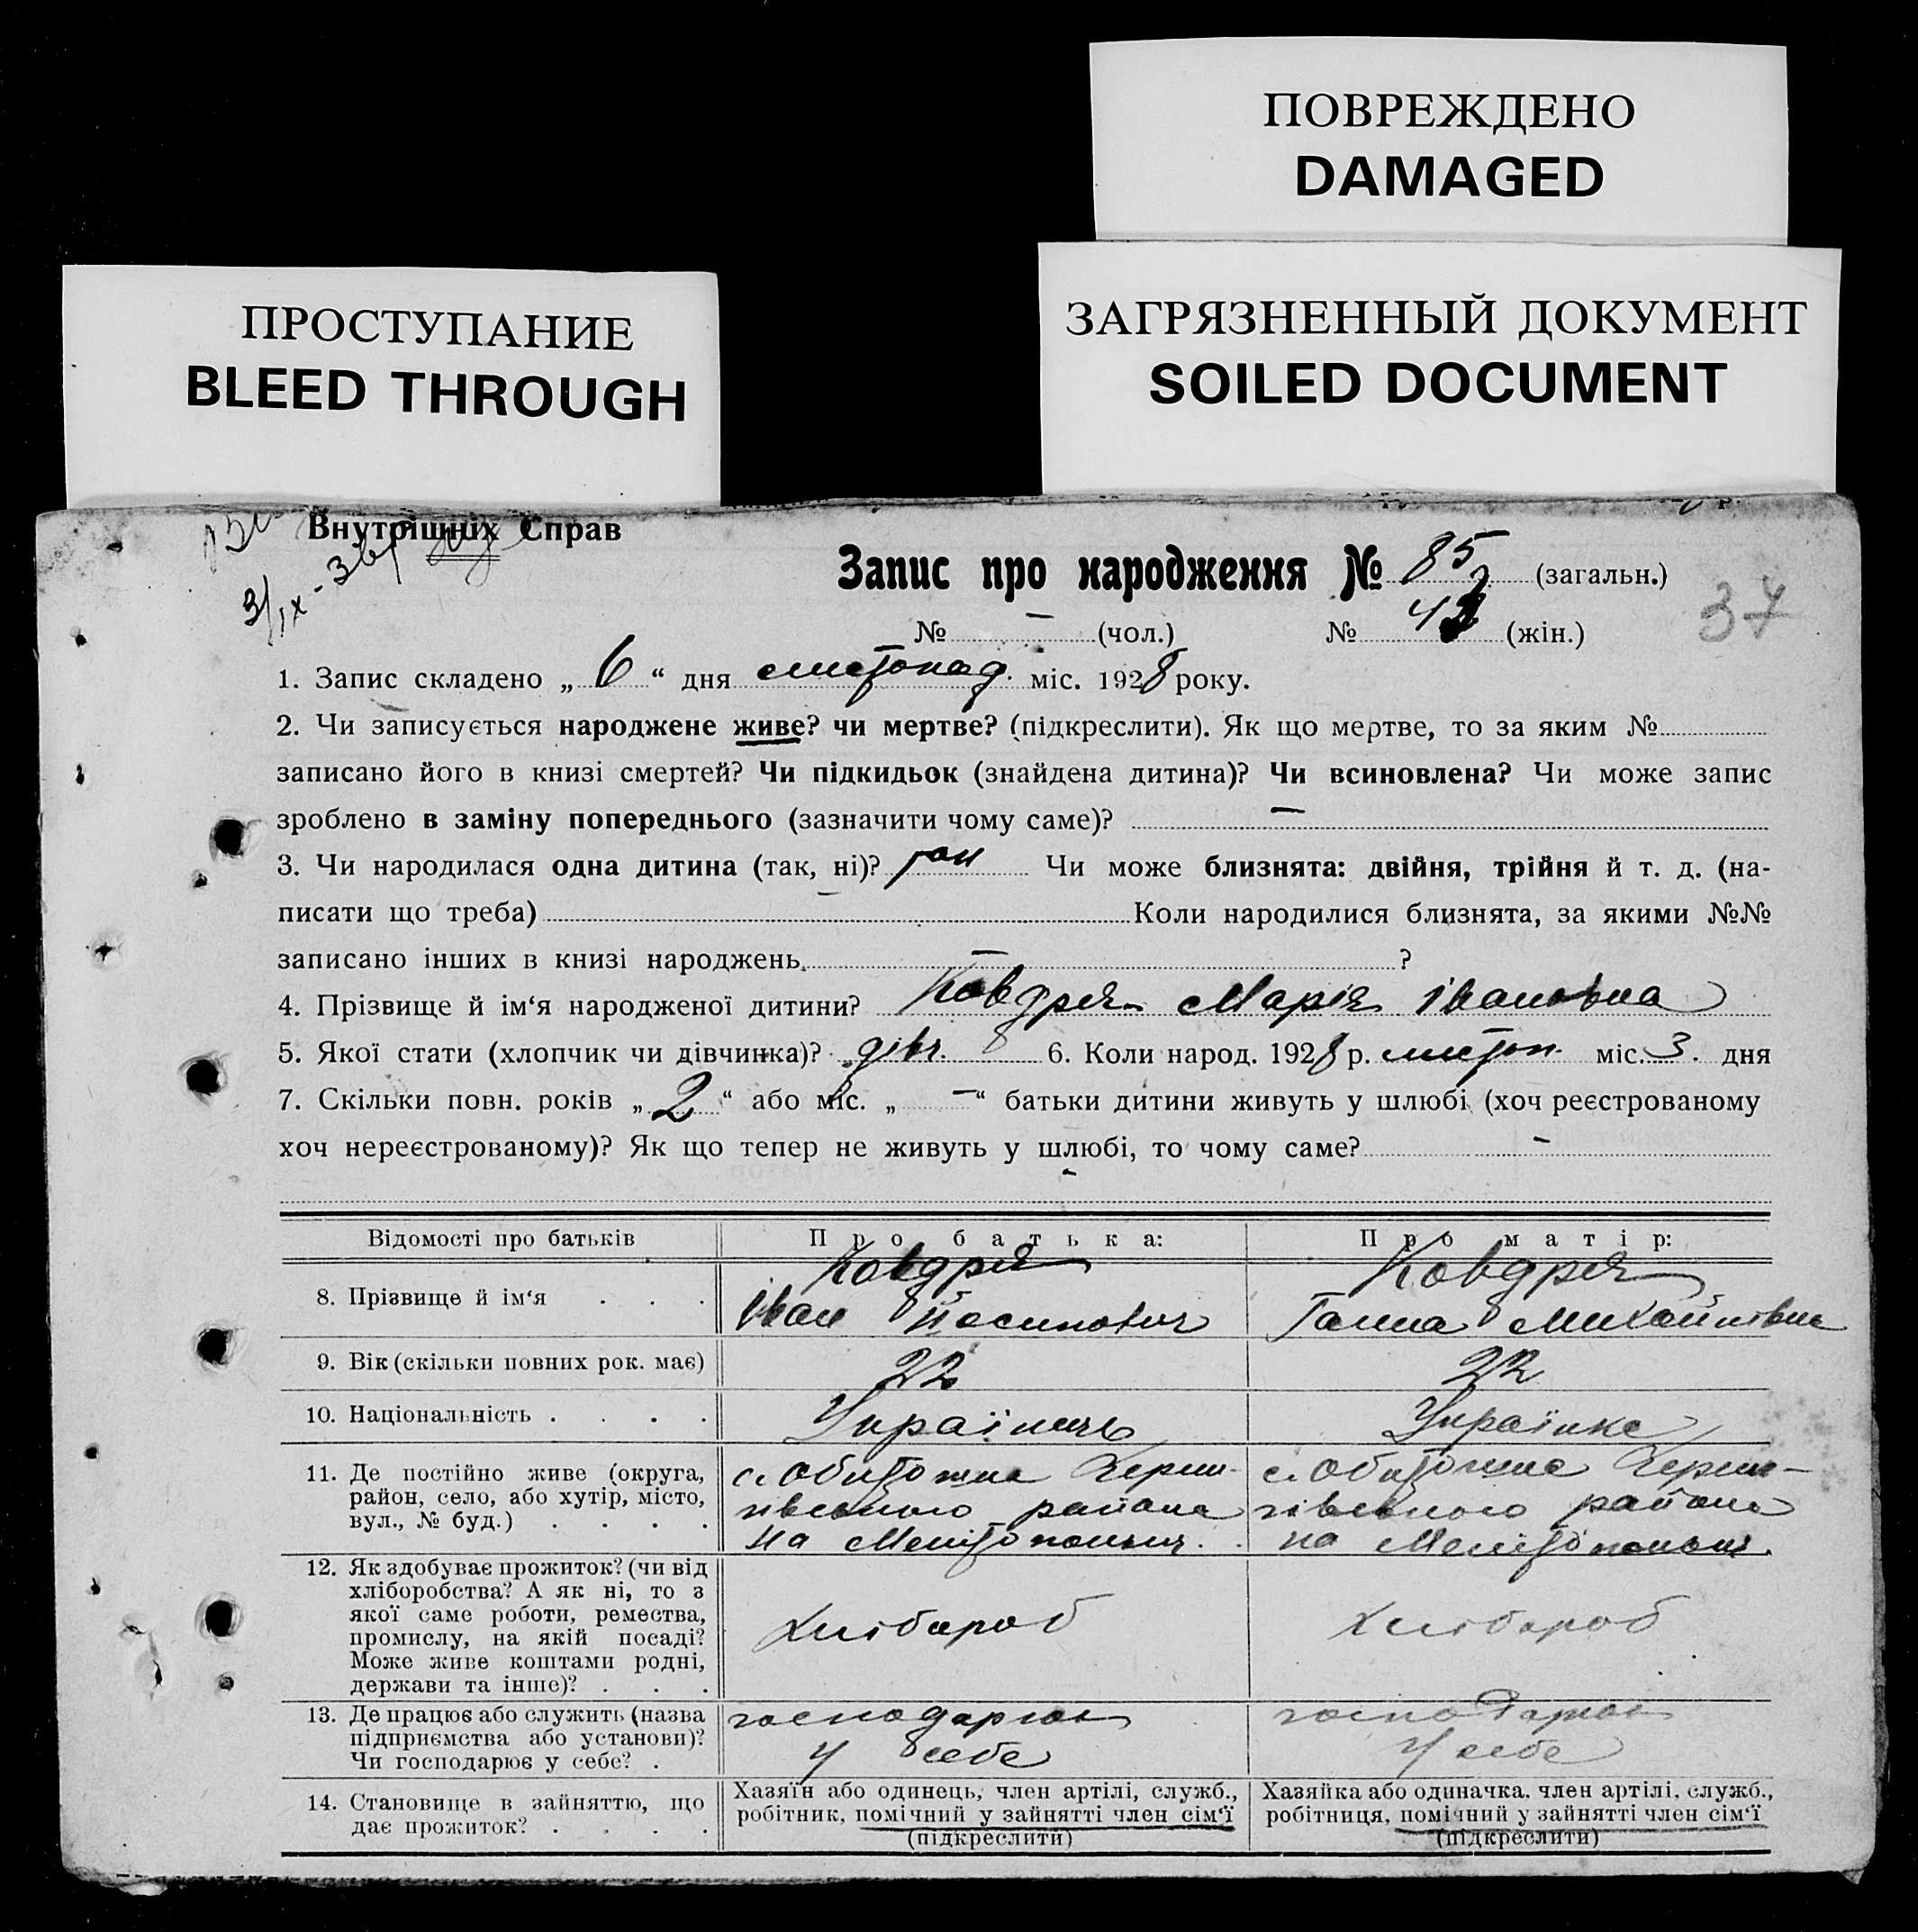 ПОВРЕЖДЕНО
DAMAGED
ПРОСТУПАНИЕ
BLEED THROUGH
ЗАГРЯЗНЕННЫЙ ДОКУМЕНТ
SOILED DOCUMENT
Внутрішніх Справ
Запис про народження № 85 (загальн.)
37
№ – (чол.) № 42 (жін.)
1. Запис складено „ 6 “ дня листопад. міс. 1928 року.
2. Чи записується народжене живе? чи мертве? (підкреслити). Як що мертве, то за яким №
записано його в книзі смертей? Чи підкидьок (знайдена дитина)? Чи всиновлена? Чи може запис
зроблено в заміну попереднього (зазначити чому саме)? —
3. Чи народилася одна дитина (так, ні)? так Чи може близнята: двійня, трійня й т. д. (на-
писати що треба) Коли народилися близнята, за якими №№
записано інших в книзі народжень — ?
4. Прізвище й ім‘я народженої дитини? Ковдря Марія Івановна
5. Якої стати (хлопчик чи дівчинка)? дівч. 6. Коли народ. 1928 р. листоп. міс. 3. дня
7. Скільки повн. років „ 2 “ або міс. „ – “ батьки дитини живуть у шлюбі (хоч реєстрованому
хоч нереєстрованому)? Як що тепер не живуть у шлюбі, то чому саме? –
Відомості про батьків Про батька: Про матір:
8. Прізвище й ім‘я . . . Ковдря Іван Йосипович Ковдря Ганна Михайлівна
9. Вік (скільки повних рок. має) 22 22
10. Національність . . . . Українець Українка
11. Де постійно живе (округа, с. Обиточне Черни- с. Обиточне Черни-
район, село, або хутір, місто, гівського району гівського району
вул., № буд.) . . . . на Мелітопольщ. на Мелітопольщ.
12. Як здобуває прожиток? (чи від
хліборобства? А як ні, то з
якої саме роботи, ремества, Хлібороб Хлібороб
промислу, на якій посаді?
Може живе коштами родні,
держави та інше)? . . .
13. Де працює або служить (назва господарює господарює
підприємства або установи)? у себе у себе
Чи господарює у себе? .
14. Становище в зайняттю, що
дає прожиток? . . . .
Хазяїн або одинець, член артілі, служб.,
робітник, помічний у зайнятті член сім‘ї
(підкреслити)
Хазяйка або одиначка, член артілі, служб.,
робітниця, помічний у зайнятті член сім‘ї
(підкреслити)